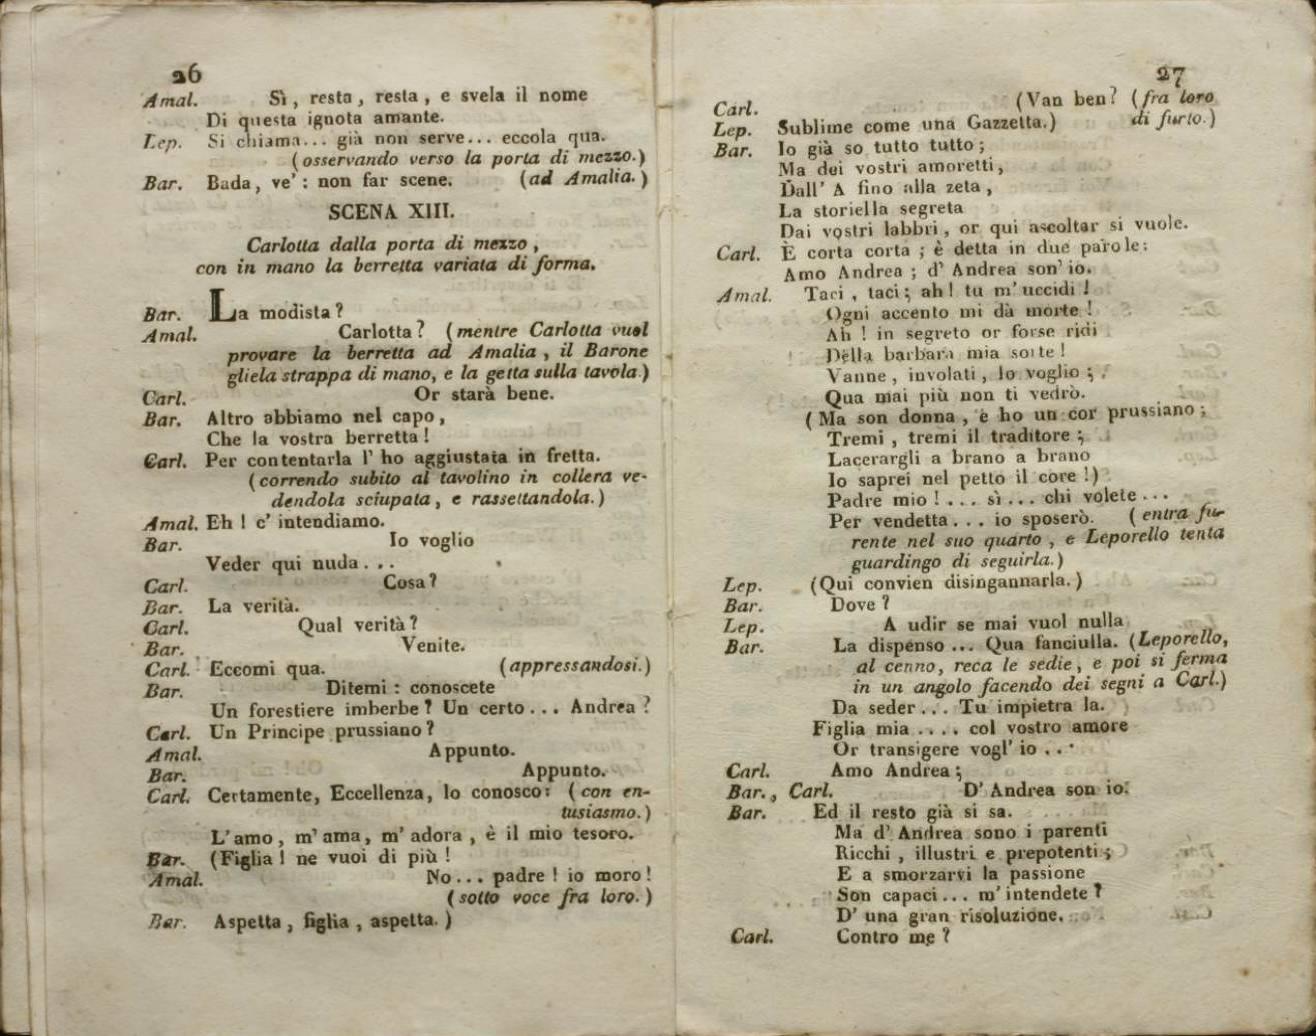 26
Amal. Sì, resta, resta, e svela il nome
Di questa ignota amante.
Lep. Si chiama... già non serve... eccola qua.
(osservando verso la porta di mezzo.)
Bar. Bada, ve': non far scene. (ad Amalia.)
SCENA XIII.
Carlotta dalla porta di mezzo,
con in mano la berretta variata di forma.
Bar. La modista?
Amal. Carlotta? (mentre Carlotta vuol
provare la berretta ad Amalia, il Barone
gliela strappa di mano, e la getta sulla tavola.)
Carl. Or starà bene.
Bar. Altro abbiamo nel capo,
Che la vostra berretta!
Carl. Per contentarla l' ho aggiustata in fretta.
(correndo subito al tavolino in collera ve-
dendola sciupata, e rassettandola.)
Amal. Eh! c' intendiamo.
Bar. Io voglio
Veder qui nuda...
Carl. Cosa?
Bar. La verità.
Carl. Qual verità?
Bar. Venite.
Carl. Eccomi qua. (appressandosi.)
Bar. Ditemi: conoscete
Un forestiere imberbe? Un certo... Andrea?
Carl. Un Principe prussiano?
Amal. Appunto.
Bar. Appunto.
Carl. Certamente, Eccellenza, lo conosco: (con en-
tusiasmo.)
L'amo, m'ama, m'adora, è il mio tesoro.
Bar. (Figlia! ne vuoi di più!
Amal. No... padre! io moro!
(sotto voce fra loro.)
Bar. Aspetta, figlia, aspetta.)
27
Carl. (Van ben? (fra loro
Lep. Sublime come una Gazzetta.) di furto.)
Bar. Io già so tutto tutto;
Ma dei vostri amoretti,
Dall' A fino alla zeta,
La storiella segreta
Dai vostri labbri, or qui ascoltar si vuole.
Carl. È corta corta; è detta in due parole:
Amo Andrea; d' Andrea son' io.
Amal. Taci, taci; ah! tu m' uccidi!
Ogni accento mi dà morte!
Ah! in segreto or forse ridi
Della barbara mia sorte!
Vanne, involati, lo voglio;
Qua mai più non ti vedrò.
(Ma son donna, e ho un cor prussiano;
Tremi, tremi il traditore;
Lacerargli a brano a brano
Io saprei nel petto il core!)
Padre mio!... sì... chi volete...
Per vendetta... io sposerò. (entra fu-
rente nel suo quarto, e Leporello tenta
guardingo di seguirla.)
Lep. (Qui convien disingannarla.)
Bar. Dove?
Lep. A udir se mai vuol nulla
Bar. La dispenso... Qua fanciulla. (Leporello,
al cenno, reca le sedie, e poi si ferma
in un angolo facendo dei segni a Carl.)
Da seder... Tu impietra la.
Figlia mia.... col vostro amore
Or transigere vogl' io...
Carl. Amo Andrea;
Bar., Carl. D' Andrea son io.
Bar. Ed il resto già si sa.
Ma d' Andrea sono i parenti
Ricchi, illustri e prepotenti;
E a smorzarvi la passione
Son capaci... m' intendete?
D' una gran risoluzione.
Carl. Contro me?